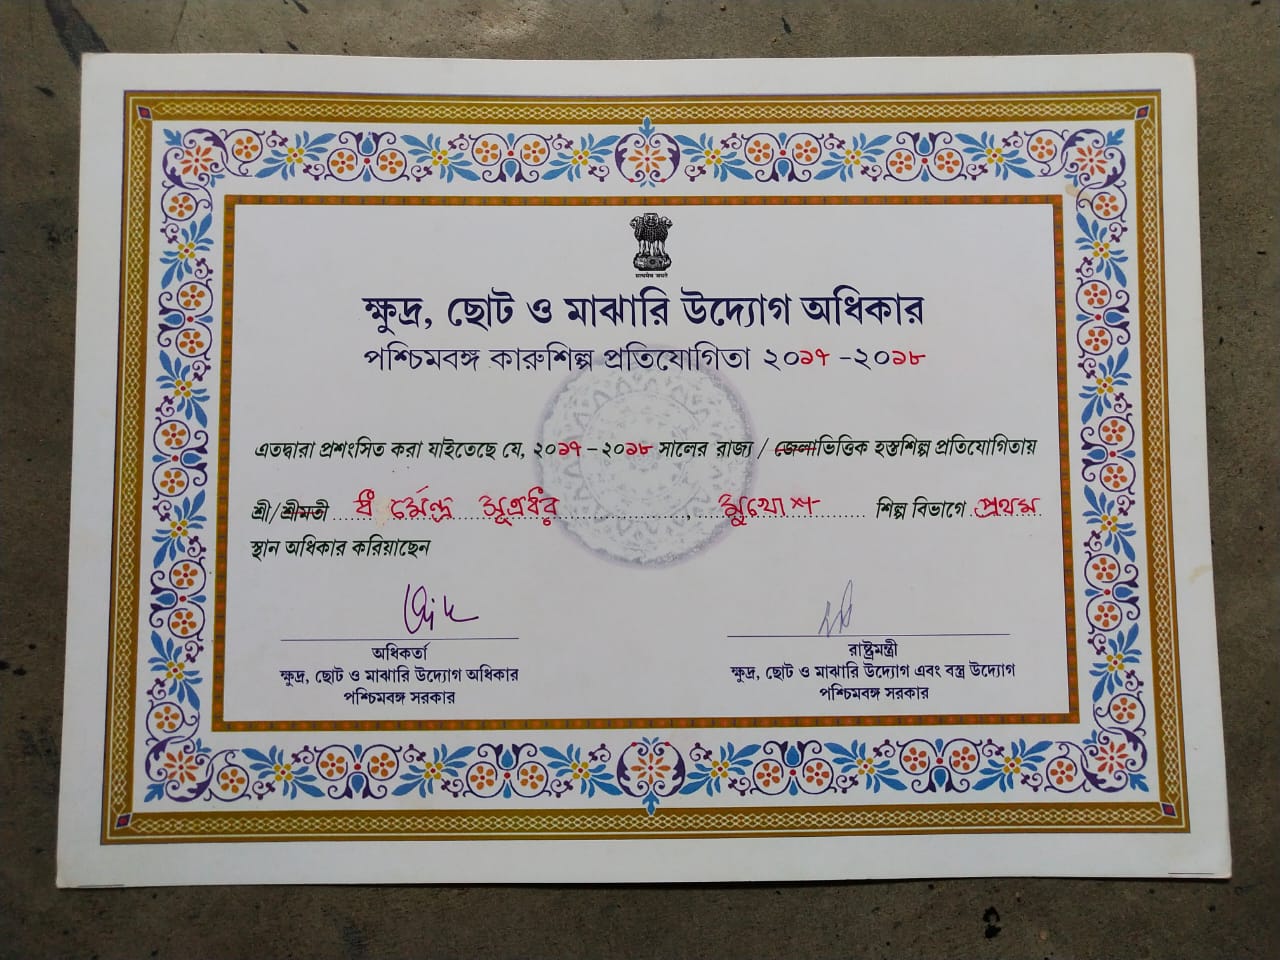 ক্ষুদ্র, ছোট ও মাঝারি উদ্যোগ অধিকার
পশ্চিমবঙ্গ কারুশিল্প প্রতিযোগিতা ২০১৭ -২০১৮
এতদ্বারা প্রশংসিত করা যাইতেছে যে, ২০১৭-২০১৮ সালের রাজ্য / জেলাভিত্তিক হস্তশিল্প প্রতিযোগিতায়
শ্রী/শ্রীমতী ধর্মেন্দ্র সূত্রধর, মুখোশ শিল্প বিভাগে প্রথম
স্থান অধিকার করিয়াছেন
অধিকর্তা
ক্ষুদ্র, ছোট ও মাঝারি উদ্যোগ অধিকার
পশ্চিমবঙ্গ সরকার
রাষ্ট্রমন্ত্রী
ক্ষুদ্র, ছোট ও মাঝারি উদ্যোগ এবং বস্ত্র উদ্যোগ
পশ্চিমবঙ্গ সরকার